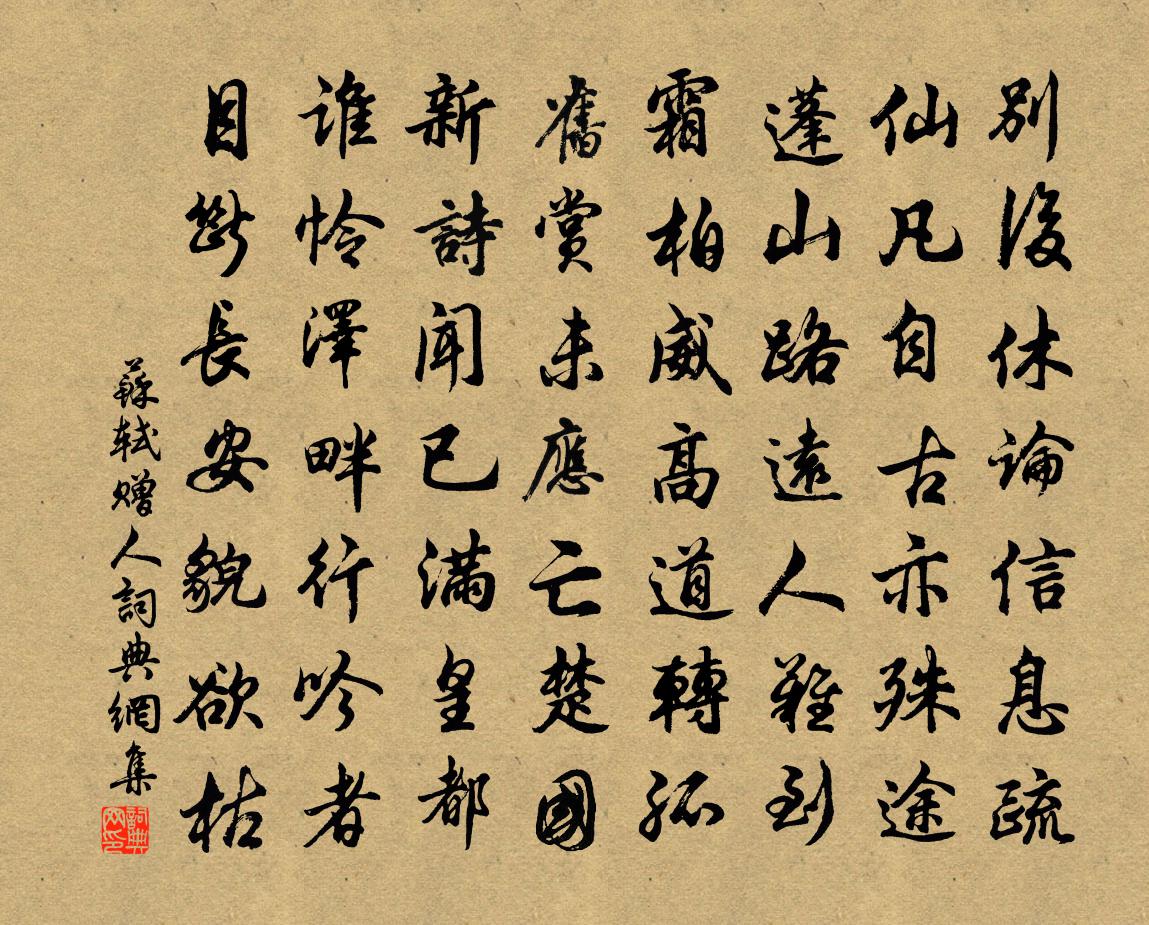 別後休論信息疏
仙凡自古亦殊途
蓬山路遠人難到
霜柏威高道轉孤
舊賞未應亡楚國
新詩聞已滿皇都
誰憐澤畔行吟者
目斷長安貌欲枯
蘇軾贈人詞典網集
詞典網印